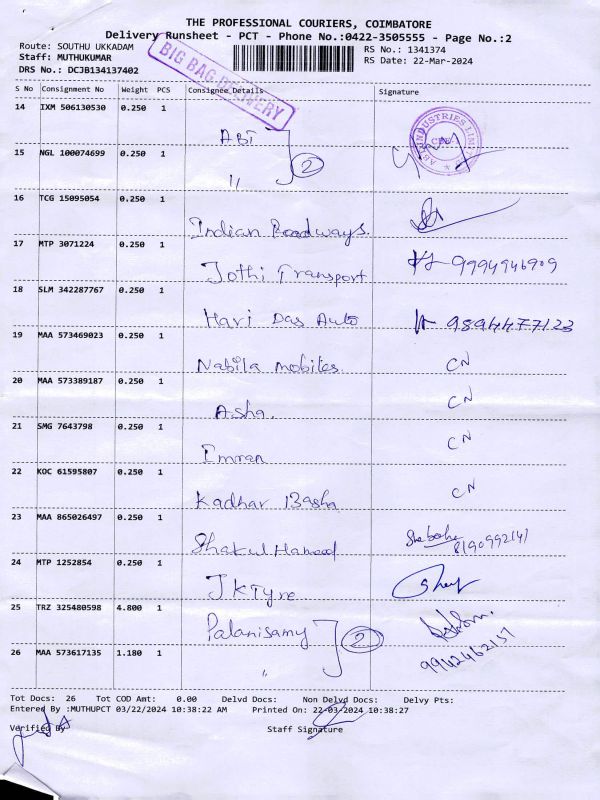 THE PROFESSIONAL COURIERS, COIMBATORE
Delivery Runsheet - PCT - Phone No.:0422-3505555 - Page No.:2
Route: SOUTHU UKKADAM
RS No.: 1341374
Staff: MUTHUKUMAR
RS Date: 22-Mar-2024
DRS No.: DCJB134137402
BIG BAG DELIVERY
S No Consignment No Weight PCS Consignee Details Signature
14 IXM 506130530 0.250 1
ABT
15 NGL 100074699 0.250 1
2
"
16 TCG 15095054 0.250 1
Indian Roadways.
17 MTP 3071224 0.250 1
Jothi Transport 9994946909
18 SLM 342287767 0.250 1
Hari Das Auto 9894477123
19 MAA 573469023 0.250 1
Nabila mobiles CN
20 MAA 573389187 0.250 1
Asha. CN
21 SMG 7643798 0.250 1
Imran CN
22 KOC 61595807 0.250 1
Kadhar Basha CN
23 MAA 865026497 0.250 1
Shakul Hameed 8190992141
24 MTP 1252854 0.250 1
JK Tyre
25 TRZ 325480598 4.800 1
Palanisamy 2
26 MAA 573617135 1.180 1 9942462157
"
Tot Docs: 26 Tot COD Amt: 0.00 Delvd Docs: Non Delvd Docs: Delvy Pts:
Entered By :MUTHUPCT 03/22/2024 10:38:22 AM Printed On: 22-03-2024 10:38:27
Verified By Staff Signature